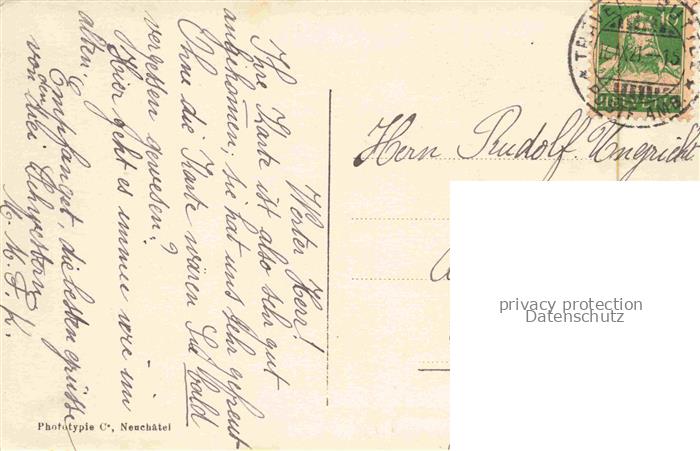 Werter Herr!
Ihre Karte ist also sehr gut
angekommen, sie hat uns sehr gefreut
Ohne die Karte wären Sie bald
vergessen gewesen?
Hier geht es immer wie im
alten.
Empfanget, die besten grüsse
von den drei Schwestern
M. M. F. K.
Phototypie Co, Neuchâtel
Herrn Rudolf. Ungricht
privacy protection
Datenschutz